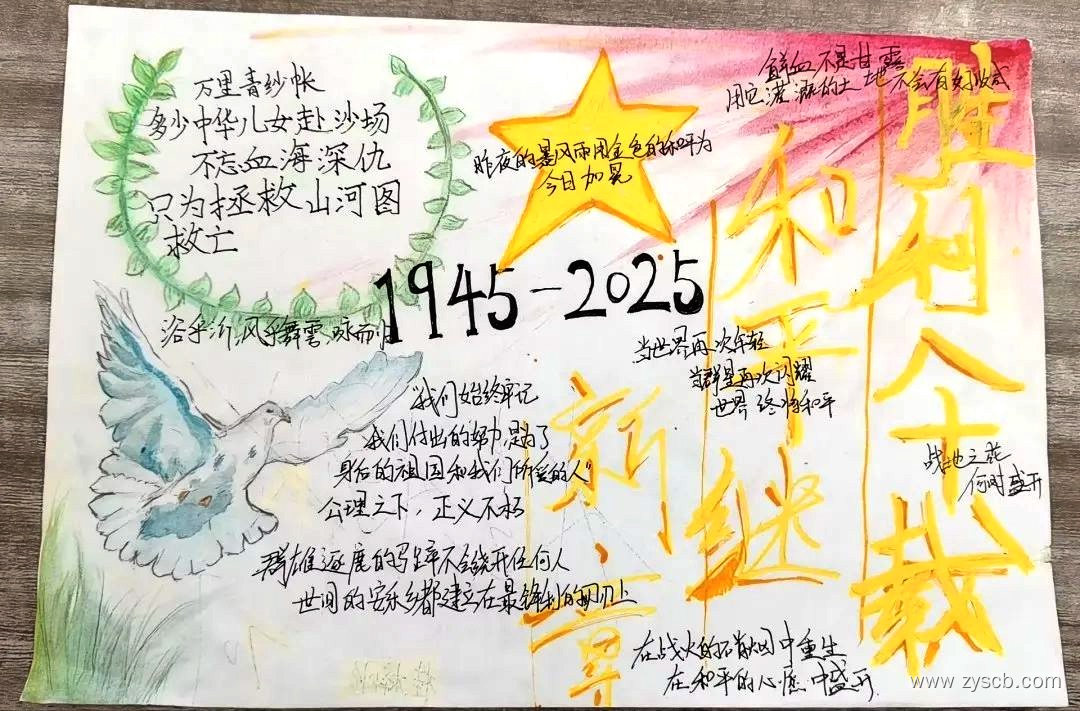 万里青纱帐
多少中华儿女赴沙场
不忘血海深仇
只为拯救山河图
救亡
昨夜的暴风雨用金色的和平为
今日加冕
鲜血不是甘露
用它灌溉的土地不会有好收成
胜利八十载
和平继
新章
1945-2025
浴乎沂,风乎舞雩,咏而归
当世界再次年轻
当群星再次闪耀
世界终将和平
"我们始终牢记
我们付出的努力是为了
身后的祖国和我们所爱的人"
公理之下,正义不朽
战地之花
何时盛开
群雄逐鹿的马蹄不会绕开任何人
世间的安乐乡都建立在最锋利的
上
在战火的硝烟中重生
在和平的心底中盛开
www.zyscb.com